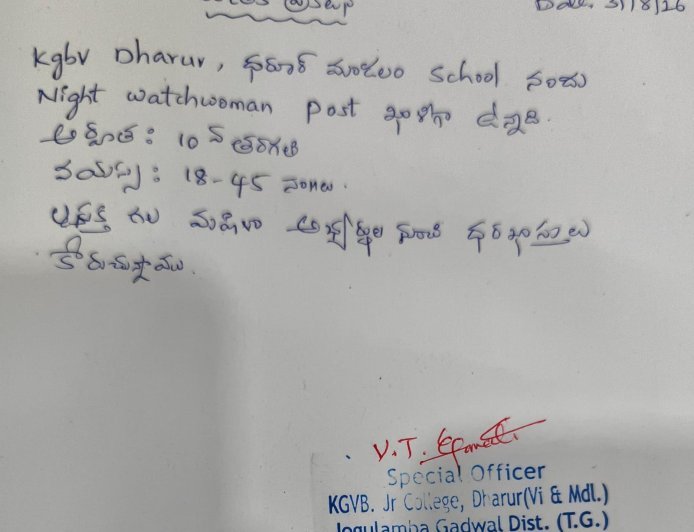 ప్రకటన Date. 31/8/26
Kgbv Dharur, ధరూర్ మండలం School నందు
Night watchwoman post ఖాళీగా ఉన్నది.
అర్హత : 10 వ తరగతి
వయస్సు : 18-45 సంIIలు.
ఆసక్తి గల మహిళా అభ్యర్థుల నుంచి ధరఖాస్తులు
కోరుచున్నాము.
V.T.
Special Officer
KGVB. Jr College, Dharur(Vi & Mdl.)
Jogulamba Gadwal Dist. (T.G.)